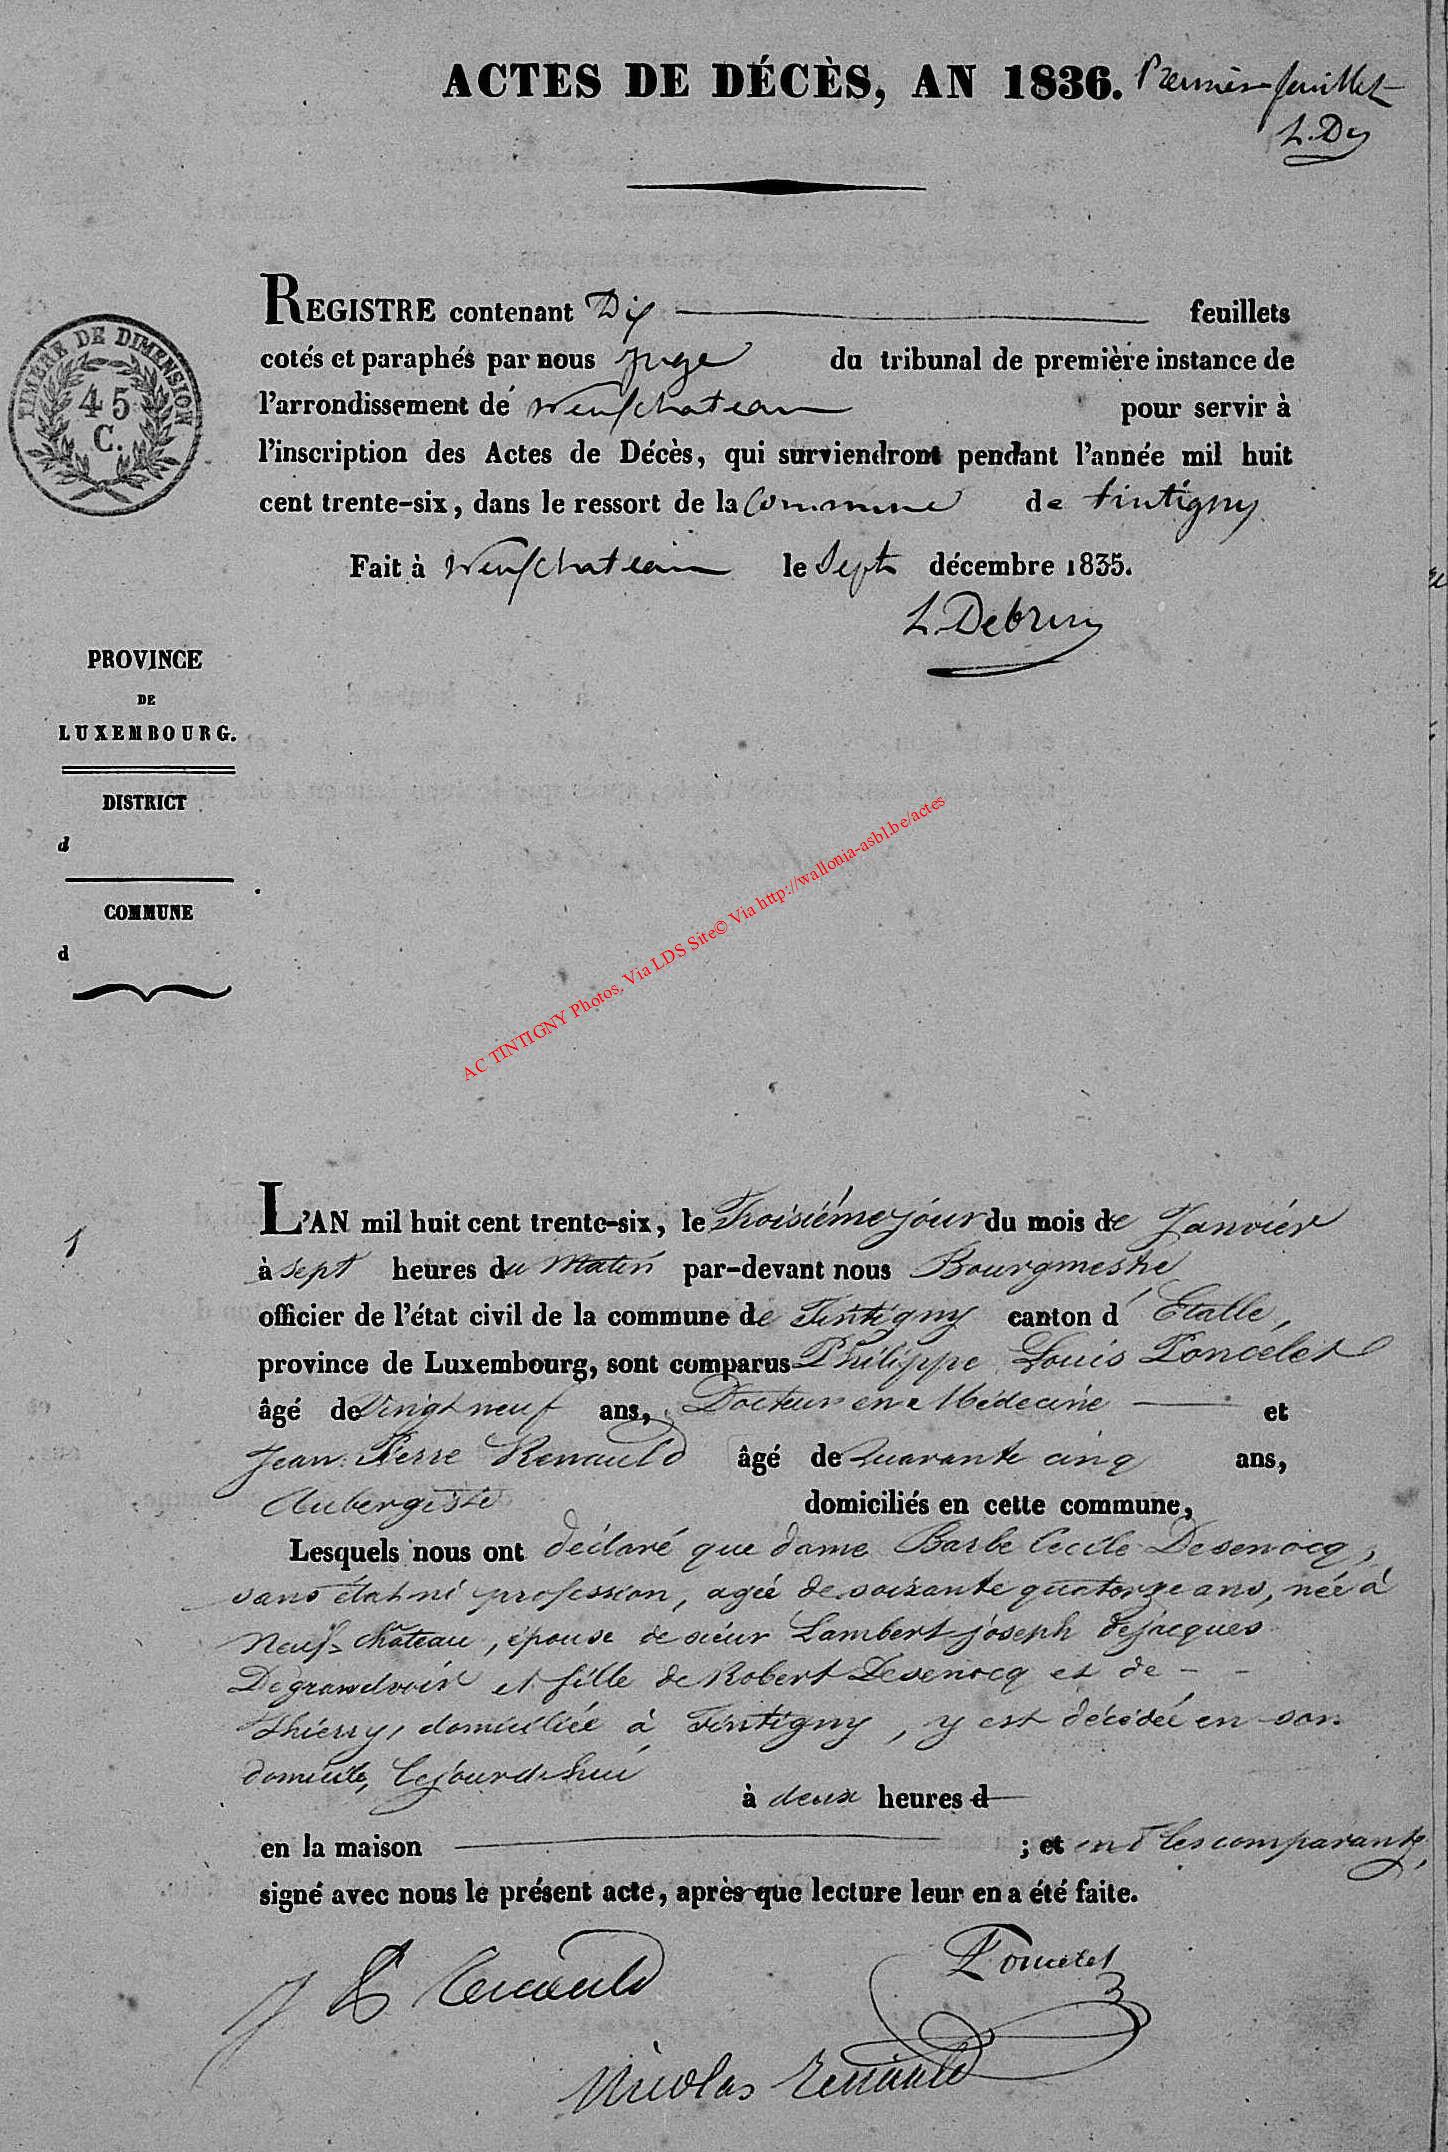 ACTES DE DÉCÈS, AN 1836. Premier feuillet
L. D
REGISTRE contenant Dix feuillets
cotés et paraphés par nous Juge du tribunal de première instance de
l'arrondissement de neufchateau pour servir à
l'inscription des Actes de Décès, qui surviendront pendant l'année mil huit
cent trente-six, dans le ressort de la Commune de tintigny
Fait à neufchateau le Sept décembre 1835.
TIMBRE DE DIMENSION
45
C.
PROVINCE
DE
LUXEMBOURG.
DISTRICT
d
COMMUNE
d
AC TINTIGNY Photos. Via LDS Site© Via http://wallonia-asbl.be/actes
1
L'AN mil huit cent trente-six, le Troisième jour du mois de Janvier
à sept heures du Matin par-devant nous Bourgmestre
officier de l'état civil de la commune de Tintigny canton d'Etalle,
province de Luxembourg, sont comparus Philippe Louis Poncelet
âgé de Vingt neuf ans, Docteur en Médecine et
Jean Pierre Renauld âgé de Quarante cinq ans,
Aubergiste domiciliés en cette commune,
Lesquels nous ont déclaré que dame Barbe Cecile Desenocq,
sans état ni profession, agée de soixante quatorze ans, née à
Neuf-château, épouse de sieur Lambert joseph dejacques
Degrandvoir et fille de Robert Desenocq et de - -
Thierry, domiciliée à Tintigny, y est décédée en son
domicile, cejourd'hui
à deux heures d
en la maison ; et ont les comparants,
signé avec nous le présent acte, après que lecture leur en a été faite.
J P Renauld
Poncelet
Nicolas Renauld